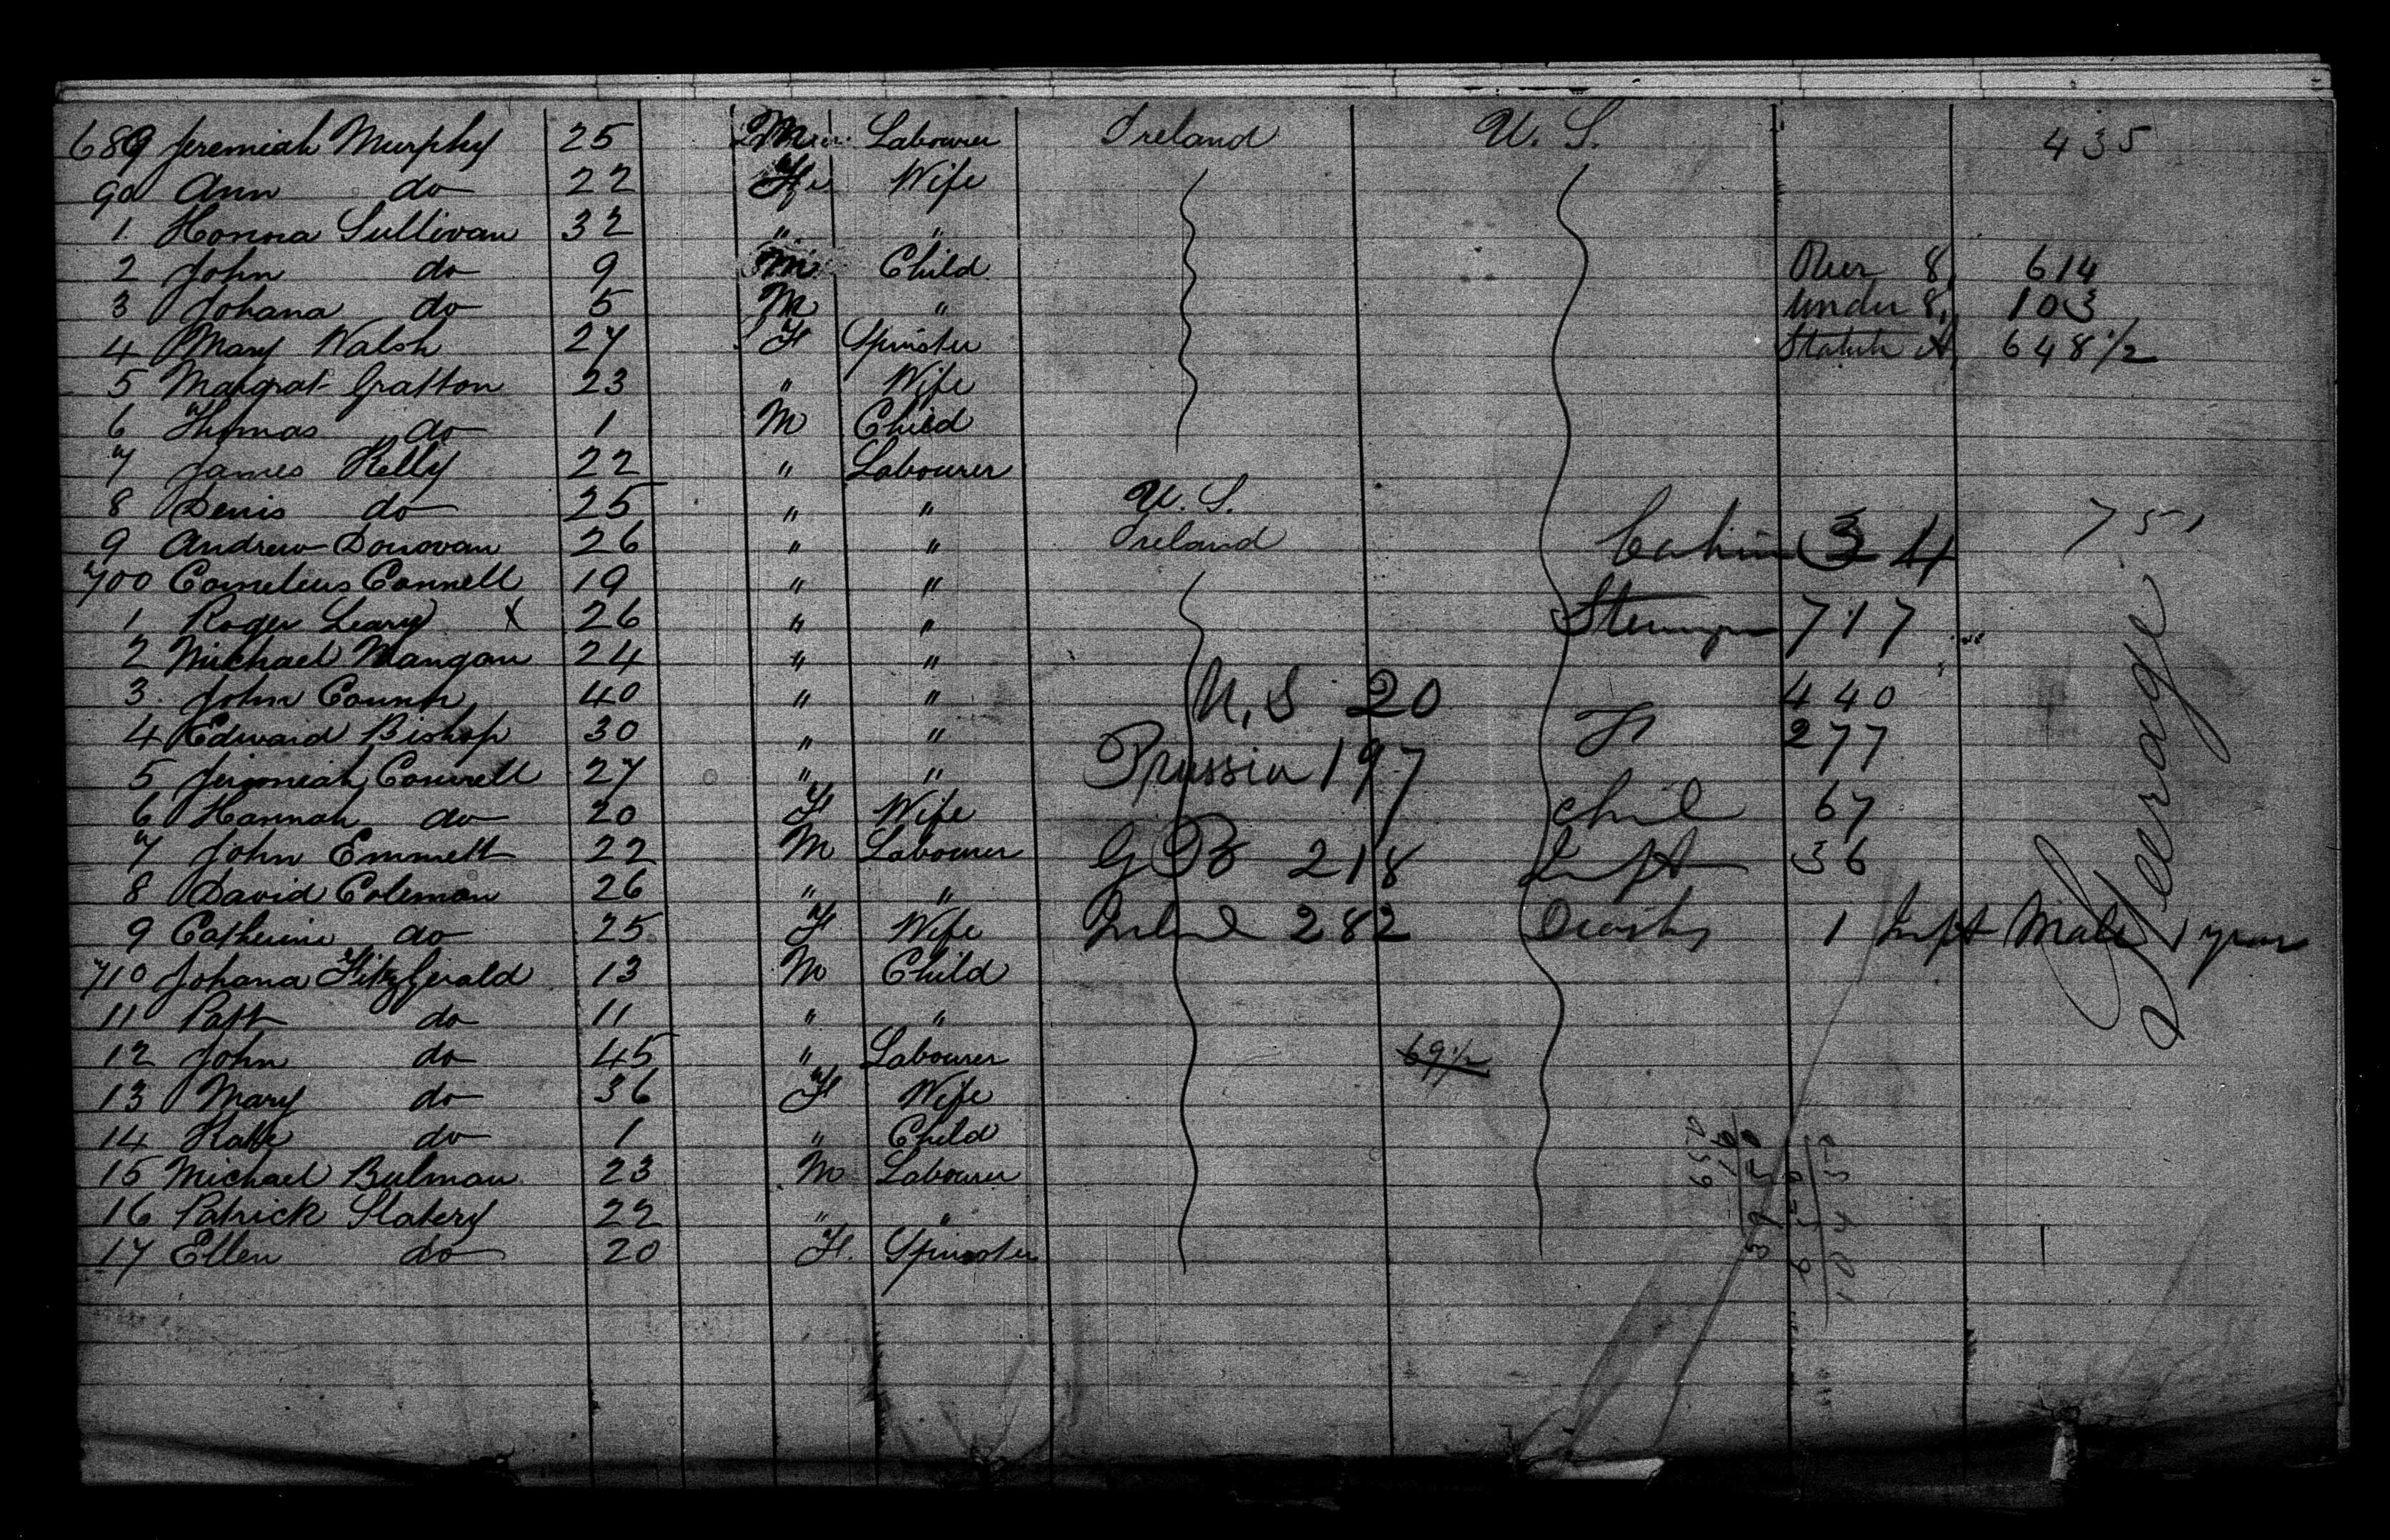 689 Jeremiah Murphy 25 M Labourer Ireland U. S. 435
90 Ann do 22 F Wife
1 Honora Sullivan 32 " "
2 John do 9 M Child Over 8, 614
3 Johana do 5 M " Under 8, 103
4 Mary Walsh 27 F Spinster Statute A 648 1/2
5 Margrat Gratton 23 " Wife
6 Thomas do 1 M Child
7 James Kelly 22 " Labourer
8 Denis do 25 " " U. S.
9 Andrew Donovan 26 " " Ireland Cabin 34 751
700 Cornelius Connell 19 " "
1 Roger Leary X 26 " " 717
2 Michael Mangan 24 " "
3. John 40 " " U. S 20 440
4 Edward Bishop 30 " " F 277
5 Jeremiah Connell 27 " " Prussia 197
6 Hannah do 20 F Wife Chil 67
7 John Emmett 22 M Labourer G B 218 Inft 36
8 David Coleman 26 " "
9 Catherine do 25 F Wife Ireland 282 Deaths 1 Inft Male 1 year
710 Johana Fitzgerald 13 M Child
11 Patt do 11 " "
12 John do 45 " Labourer 69 1/2
13 Mary do 36 F Wife
14 Kate do 1 " Child
15 Michael Bulman 23 M Labourer
16 Patrick Slatery 22 " "
17 Ellen do 20 F. Spinster
Steerage